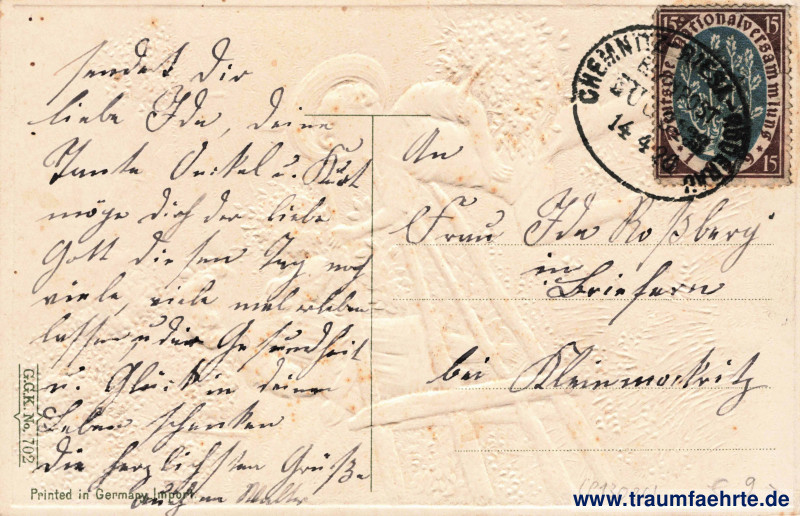 sendet Dir
liebe Ida, deine
Tante Onkel u. Kurt
möge Dich der liebe
Gott diesen Tag noch
viele, viele mal erleben
lassen u. dir Gesundheit
u. Glück in deinem
Leben schenken
die herzlichsten Grüße
auch an
An
Frau Ida Roßberg
in
Briefern
bei Kleinmockritz
CHEMNITZ RIESA
14.4.20
15 15
Deutsche Nationalversammlung
1919
15
G.G.K. No. 702
Printed in Germany Import
www.traumfaehrte.de